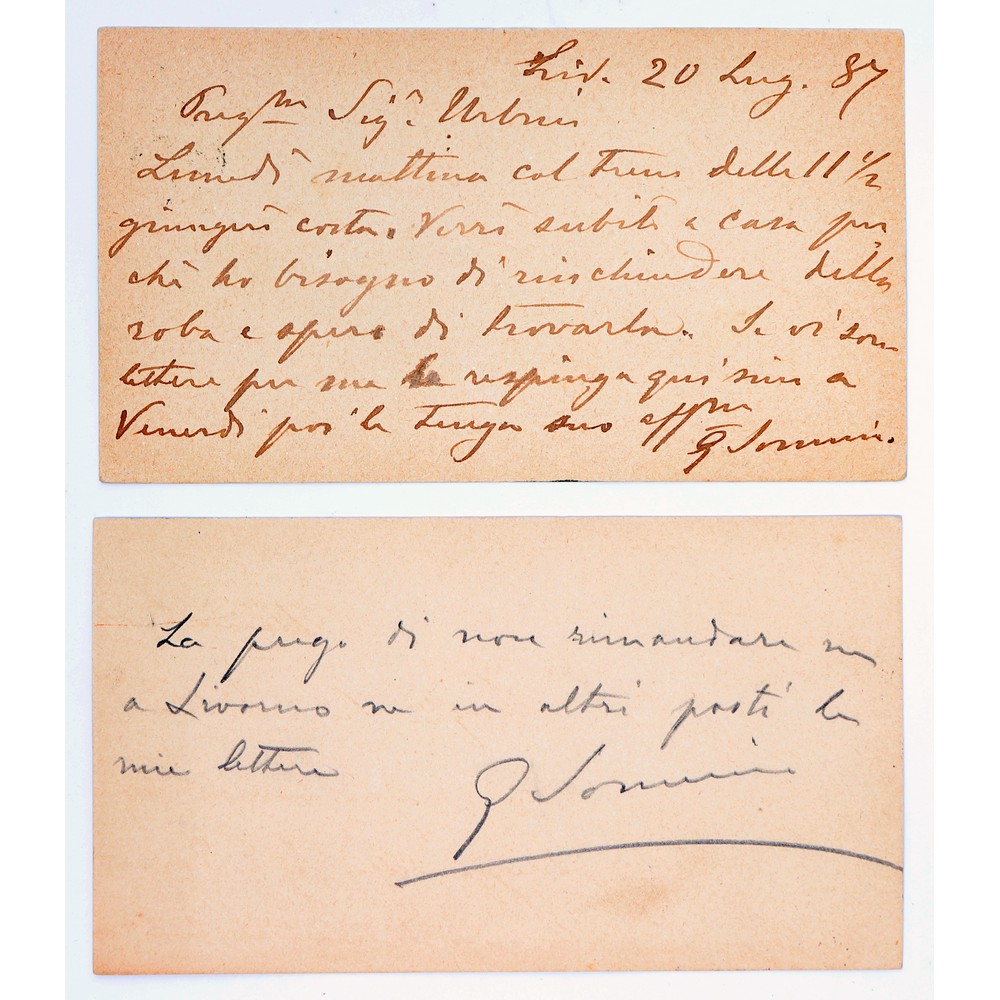 Liv. 20 Lug. 87
Preg.mo Sig.r Urbini
Lunedì mattina col treno delle 11 1/2
giungerò costà. Verrò subito a casa per
chè ho bisogno di rinchiudere della
roba e spero di trovarla. Se vi son
lettere per me le respinga qui sino a
Venerdì poi le tenga suo affmo
G Sommini.
La prego di non rimandare ne
a Livorno ne in altri posti le
mie lettere
G Sommini